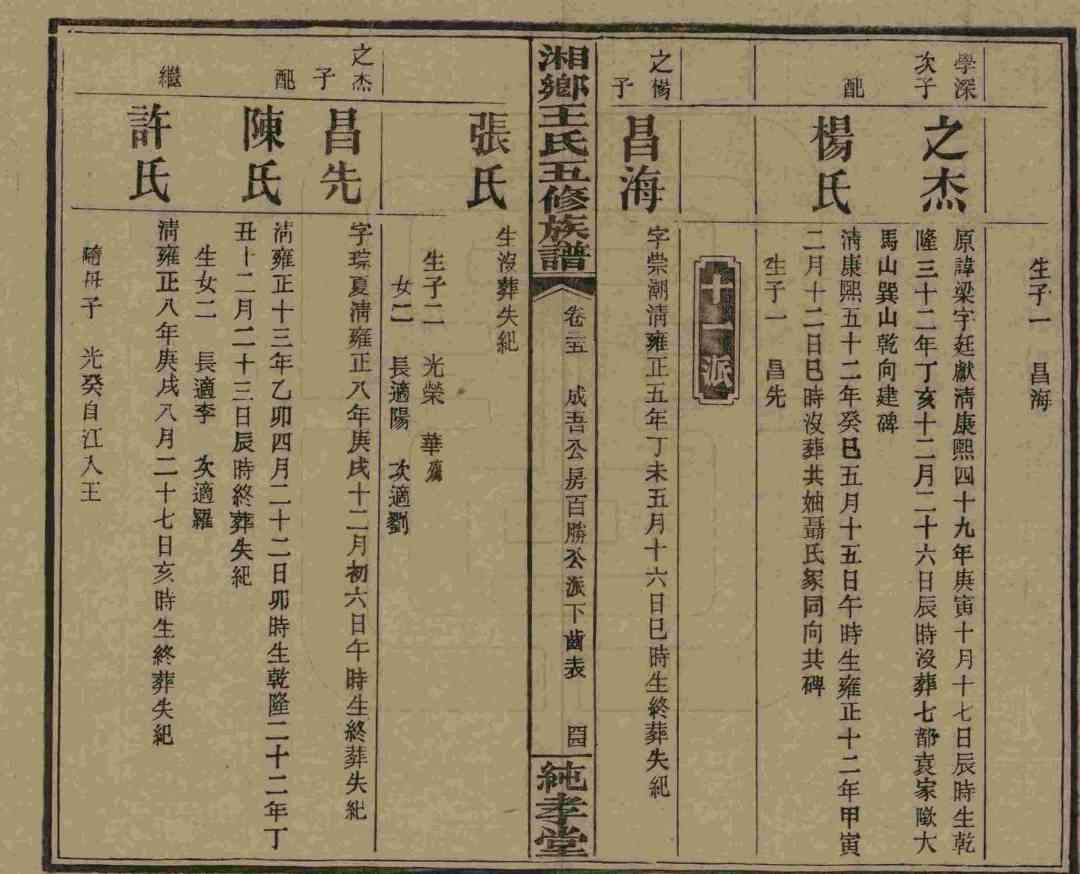 生子一 昌海
學深
次子
之杰
原諱梁字廷獻清康熙四十九年庚寅十月十七日辰時生乾
隆三十二年丁亥十二月二十六日辰時沒葬七都袁家墩大
馬山巽山乾向建碑
配
楊氏
清康熙五十二年癸巳五月十五日午時生雍正十二年甲寅
二月十二日巳時沒葬共妯聶氏冢同向共碑
生子一 昌先
十一派
之楷
子
昌海
字崇潮清雍正五年丁未五月十六日巳時生終葬失紀
湘鄉王氏五修族譜
卷二五 成吾公房百勝公派下齒表 四四
純孝堂
張氏
生沒葬失紀
生子二 光榮 華
女二 長適陽 次適劉
之杰
子
昌先
字琮夏清雍正八年庚戌十二月初六日午時生終葬失紀
配
陳氏
清雍正十三年乙卯四月二十二日卯時生乾隆二十二年丁
丑十二月二十三日辰時終葬失紀
生女二 長適李 次適羅
繼
許氏
清雍正八年庚戌八月二十七日亥時生終葬失紀
隨母子 光癸自江入王